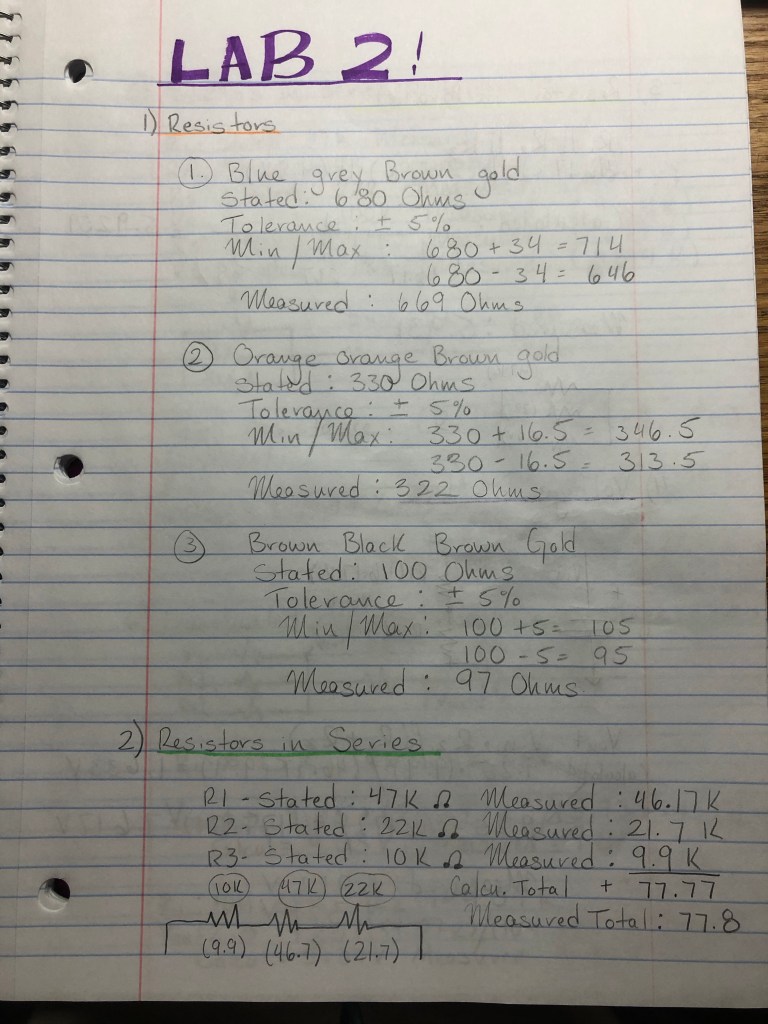 LAB 2!
1) Resistors
1. Blue grey Brown gold
Stated: 680 Ohms
Tolerance: ± 5%
Min/Max: 680 + 34 = 714
680 - 34 = 646
Measured: 669 Ohms
2 Orange orange Brown gold
Stated: 330 Ohms
Tolerance: ± 5%
Min/Max: 330 + 16.5 = 346.5
330 - 16.5 = 313.5
Measured: 322 Ohms
3 Brown Black Brown Gold
Stated: 100 Ohms
Tolerance: ± 5%
Min/Max: 100 + 5 = 105
100 - 5 = 95
Measured: 97 Ohms
2) Resistors in Series
R1 - Stated: 47K Ω Measured: 46.17K
R2- Stated: 22K Ω Measured: 21.7 K
R3- Stated: 10K Ω Measured: 9.9 K
10K 47K 22K Calcu. Total + 77.77
Measured Total: 77.8
(9.9) (46.7) (21.7)